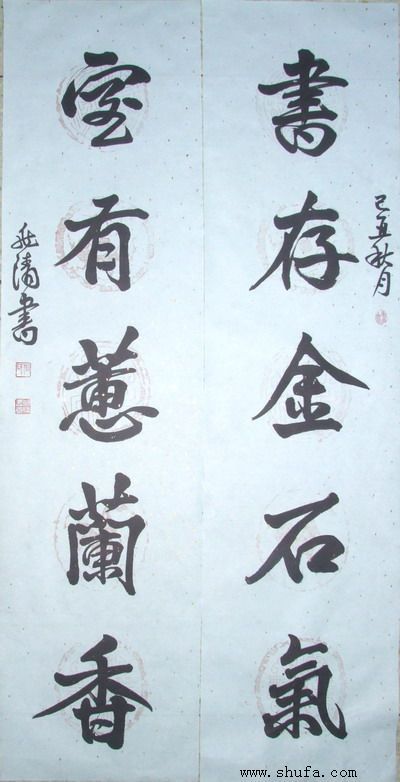 書存金石氣
己丑秋月
室有蕙蘭香
清書
www.shufa.com